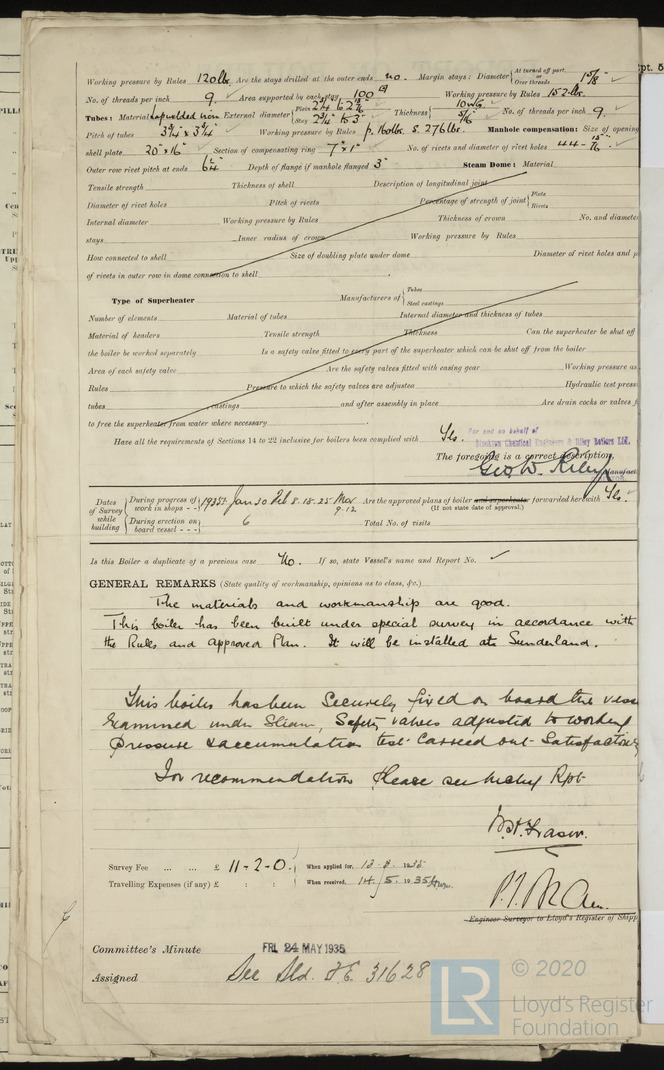 Working pressure by Rules 120 lbs. Are the stays drilled at the outer ends no. Margin stays: Diameter { At turned off part, or Over threads 1 5/8"
No. of threads per inch 9. Area supported by each stay 100 Working pressure by Rules 152 lbs.
Tubes: Material Lapwelded iron External diameter { Plain 2 3/4" Stay 2 3/4" Thickness { 10 WG 5/16 No. of threads per inch 9.
Pitch of tubes 3 3/4 x 3 3/4" Working pressure by Rules p. 160 lbs. s. 276 lbs. Manhole compensation: Size of opening
shell plate 20" x 16" Section of compensating ring 7" x 1" No. of rivets and diameter of rivet holes 44 - 15/16"
Outer row rivet pitch at ends 6 1/4" Depth of flange if manhole flanged 3" Steam Dome: Material
Tensile strength Thickness of shell Description of longitudinal joint
Diameter of rivet holes Pitch of rivets Percentage of strength of joint { Plate Rivets
Internal diameter Working pressure by Rules Thickness of crown No. and diameter
stays Inner radius of crown Working pressure by Rules
How connected to shell Size of doubling plate under dome Diameter of rivet holes and p
of rivets in outer row in dome connection to shell
Type of Superheater Manufacturers of { Tubes Steel castings
Number of elements Material of tubes Internal diameter and thickness of tubes
Material of headers Tensile strength Thickness Can the superheater be shut off
the boiler be worked separately Is a safety valve fitted to every part of the superheater which can be shut off from the boiler
Area of each safety valve Are the safety valves fitted with easing gear Working pressure as
Rules Pressure to which the safety valves are adjusted Hydraulic test press
tubes castings and after assembly in place Are drain cocks or valves f
to free the superheater from water where necessary
Have all the requirements of Sections 14 to 22 inclusive for boilers been complied with Yes.
For and on behalf of
Stockton Chemical Engineers & Riley Boilers Ltd.
The foregoing is a correct description,
Geo W. Riley Manufact
Dates of Survey while building { During progress of work in shops - - 1935 Jan 30 Feb 8. 18. 25 Mar 9-12 Are the approved plans of boiler and superheater forwarded herewith Yes.
(If not state date of approval.)
During erection on board vessel - - - 6 Total No. of visits
Is this Boiler a duplicate of a previous case No. If so, state Vessel's name and Report No.
GENERAL REMARKS (State quality of workmanship, opinions as to class, &c.)
The materials and workmanship are good.
This boiler has been built under special survey in accordance with
the Rules and approved Plan. It will be installed at Sunderland.
This boiler has been securely fixed on board the vess
Examined under Steam, Safety valves adjusted to working
pressure & accumulation test carried out satisfactorily
For recommendation Please see Mchy Rpt
Survey Fee ... ... £ 11-2-0. When applied for, 13-3-1935
Travelling Expenses (if any) £ : : When received, 14/5. 1935
Engineer Surveyor to Lloyd's Register of Shipp
Committee's Minute FRI. 24 MAY 1935
Assigned See Sld. F.E. 31628
LR © 2020
Lloyd's Register
Foundation